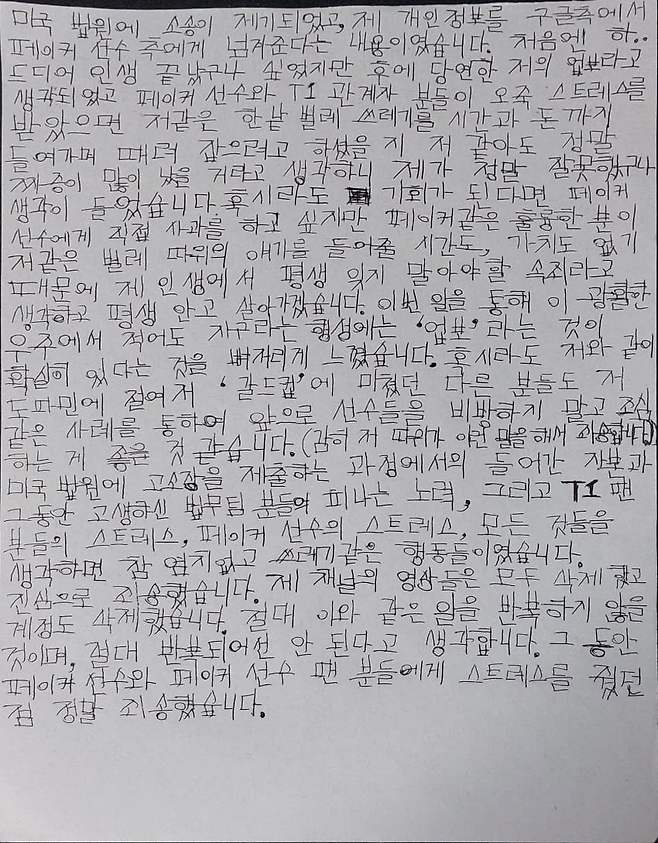 미국 법원에 소송이 제기되었고, 제 개인정보를 구글측에서
페이커 선수 측에게 넘겨준다는 내용이였습니다. 처음엔 하..
드디어 인생 끝났구나 싶었지만 후에 당연한 저의 업보라고
생각되었고 페이커 선수와 T1 관계자 분들이 오죽 스트레스를
받았으면 저같은 한낱 벌레 쓰레기를 시간과 돈까지
들여가며 때려 잡으려고 하셨을 지 저 같아도 정말
짜증이 많이 났을 거라고 생각하니 제가 정말 잘못했구나
생각이 들었습니다. 혹시라도 기회가 된다면 페이커
선수에게 직접 사과를 하고 싶지만 페이커같은 훌륭한 분이
저같은 벌레 따위의 얘기를 들어줄 시간도, 가치도 없기
때문에 제 인생에서 평생 잊지 말아야할 속죄라고
생각하고 평생 안고 살아가겠습니다. 이번 일을 통해 이 광활한
우주에서 적어도 지구라는 행성에는 '업보'라는 것이
확실히 있다는 것을 뼈저리게 느꼈습니다. 혹시라도 저와 같이
도파민에 절여져 '골드컵'에 미쳤던 다른 분들도 저
같은 사례를 통하여 앞으로 선수들을 비방하지 말고 조심
하는 게 좋을 것 같습니다.(감히 저 따위가 이런 말을 해서 죄송합니다)
미국 법원에 고소장을 제출하는 과정에서의 들어간 자본과
그동안 고생하신 법무팀 분들의 피나는 노력, 그리고 T1 팬
분들의 스트레스, 페이커 선수의 스트레스, 모든 것들을
생각하면 참 염치없고 쓰레기같은 행동들이였습니다.
진심으로 죄송했습니다. 제 채널의 영상들은 모두 삭제했고
계정도 삭제했습니다. 절대 이와 같은 일을 반복하지 않을
것이며, 절대 반복되어선 안 된다고 생각합니다. 그 동안
페이커 선수와 페이커 선수 팬 분들에게 스트레스를 줬던
점 정말 죄송했습니다.